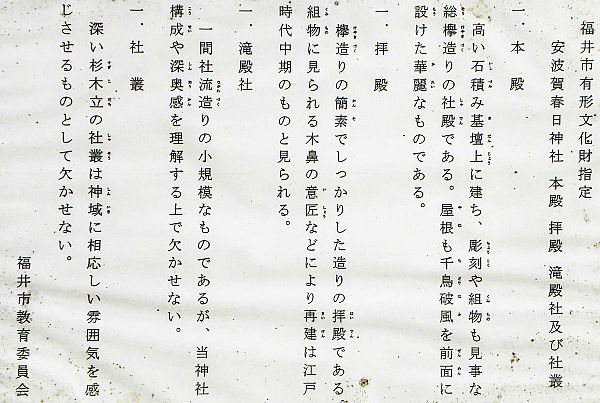 福井市有形文化財指定
安波賀春日神社 本殿 拝殿 滝殿社及び社叢
一．本殿
高い石積み基壇上に建ち、彫刻や組物も見事な
総欅造りの社殿である。屋根も千鳥破風を前面に
設けた華麗なものである。
一．拝殿
欅造りの簡素でしっかりした造りの拝殿である。
組物に見られる木鼻の意匠などにより再建は江戸
時代中期のものと見られる。
一．滝殿社
一間社流造りの小規模なものであるが、当神社
構成や深奥感を理解する上で欠かせない。
一．社叢
深い杉木立の社叢は神域に相応しい雰囲気を感
じさせるものとして欠かせない。
福井市教育委員会